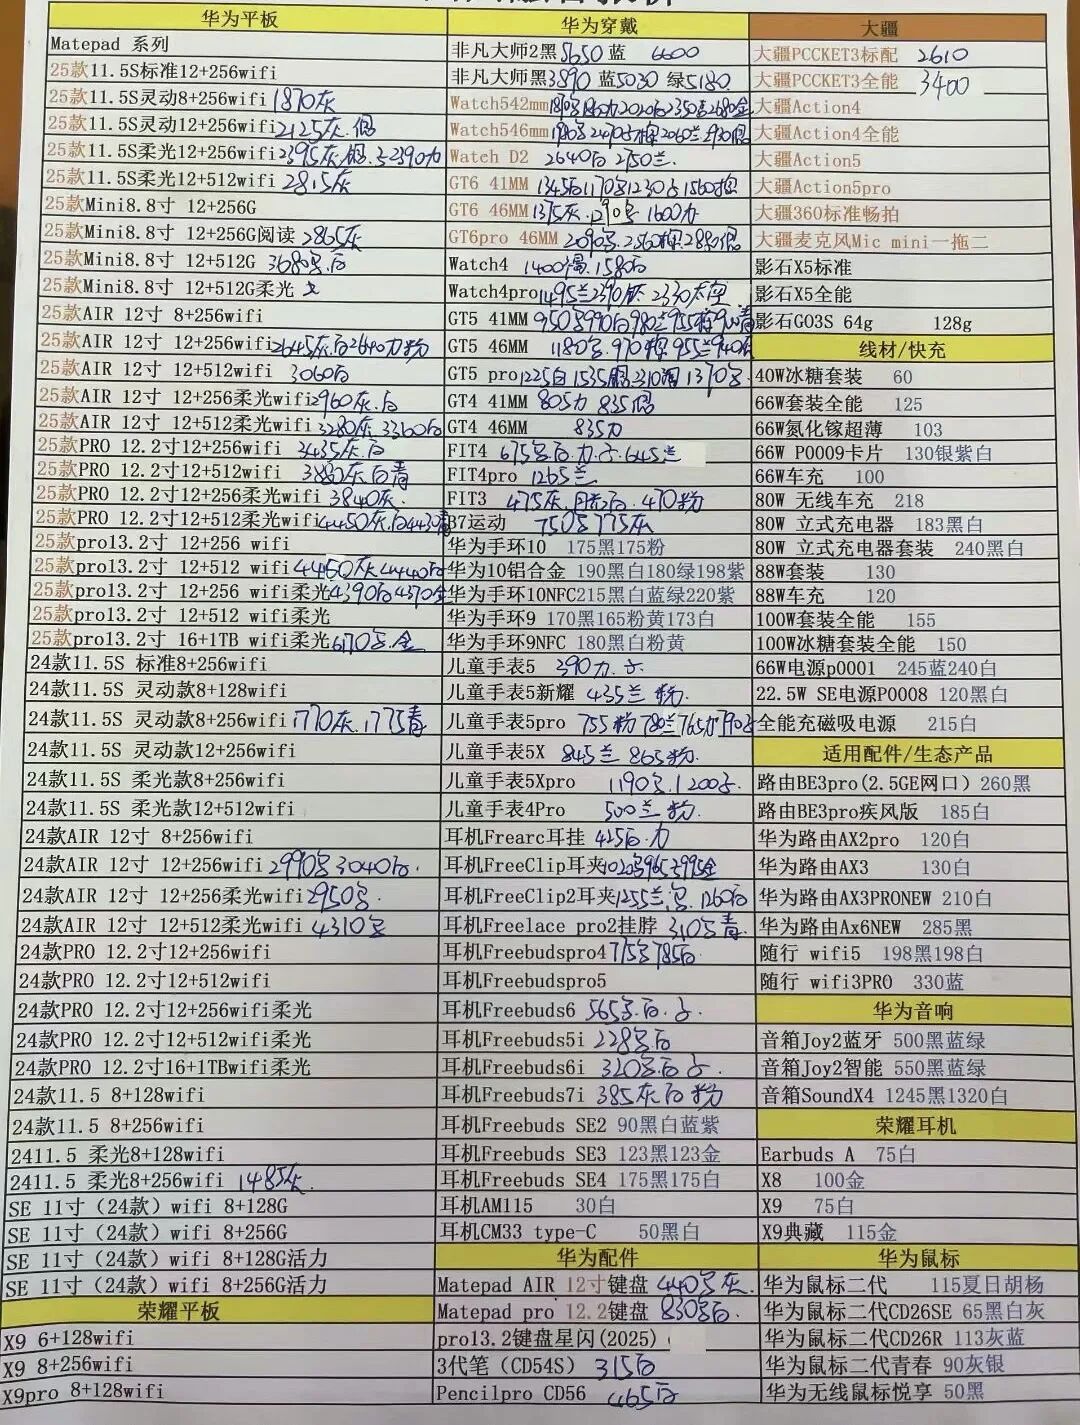 华为平板
Matepad 系列
25款11.5S标准12+256wifi
25款11.5S灵动8+256wifi 1870灰
25款11.5S灵动12+256wifi 2125灰.
25款11.5S柔光12+256wifi 2395灰
25款11.5S柔光12+512wifi 2815灰
25款Mini8.8寸 12+256G
25款Mini8.8寸 12+256G阅读 2865灰
25款Mini8.8寸 12+512G 3680
25款Mini8.8寸 12+512G柔光
25款AIR 12寸 8+256wifi
25款AIR 12寸 12+256wifi 2645灰.白2640 粉
25款AIR 12寸 12+512wifi 3060白
25款AIR 12寸 12+256柔光wifi 2960灰.白
25款AIR 12寸 12+512柔光wifi 3280灰 3360白
25款PRO 12.2寸12+256wifi 3435灰.白
25款PRO 12.2寸12+512wifi 灰白青
25款PRO 12.2寸12+256柔光wifi 3840灰.
25款PRO 12.2寸12+512柔光wifi 4450灰.白4430
25款pro13.2寸 12+256 wifi
25款pro13.2寸 12+512 wifi 4450灰4440白
25款pro13.2寸 12+256 wifi柔光4390白4370金
25款pro13.2寸 12+512 wifi柔光
25款pro13.2寸 16+1TB wifi柔光 金
24款11.5S 标准8+256wifi
24款11.5S 灵动款8+128wifi
24款11.5S 灵动款8+256wifi 1770灰.1775青
24款11.5S 灵动款12+256wifi
24款11.5S 柔光款8+256wifi
24款11.5S 柔光款12+512wifi
24款AIR 12寸 8+256wifi
24款AIR 12寸 12+256wifi 2990 3040白.
24款AIR 12寸 12+256柔光wifi 2950
24款AIR 12寸 12+512柔光wifi 4310
24款PRO 12.2寸12+256wifi
24款PRO 12.2寸12+512wifi
24款PRO 12.2寸12+256wifi柔光
24款PRO 12.2寸12+512wifi柔光
24款PRO 12.2寸16+1TBwifi柔光
24款11.5 8+128wifi
24款11.5 8+256wifi
2411.5 柔光8+128wifi
2411.5 柔光8+256wifi 1485灰.
SE 11寸（24款）wifi 8+128G
SE 11寸（24款）wifi 8+256G
SE 11寸（24款）wifi 8+128G活力
SE 11寸（24款）wifi 8+256G活力
荣耀平板
X9 6+128wifi
X9 8+256wifi
X9pro 8+128wifi
华为穿戴
非凡大师2黑5650 蓝 6600
非凡大师黑3890 蓝5030 绿5180.
Watch542mm
Watch546mm
Watch D2 2640白 2750兰.
GT6 41MM
GT6 46MM 1375灰.
GT6pro 46MM
Watch4 1400 1580白
Watch4pro
GT5 41MM
GT5 46MM 1180
GT5 pro1225白
GT4 41MM 805 835
GT4 46MM 835
FIT4 675 645兰
FIT4pro 1265兰
FIT3 475灰. 白.470粉
B7运动 775灰
华为手环10 175黑175粉
华为10铝合金 190黑白180绿198紫
华为手环10NFC215黑白蓝绿220紫
华为手环9 170黑165粉黄173白
华为手环9NFC 180黑白粉黄
儿童手表5 390
儿童手表5新耀 435兰 粉.
儿童手表5pro 755粉 780兰765
儿童手表5X 845兰 865粉.
儿童手表5Xpro 1190 1200
儿童手表4Pro 500兰 粉.
耳机Frearc耳挂 425白.
耳机FreeClip耳夹
耳机FreeClip2耳夹1255兰. 1260白
耳机Freelace pro2挂脖 310 青
耳机Freebudspro4 775 785白
耳机Freebudspro5
耳机Freebuds6 565 白.
耳机Freebuds5i 228 白
耳机Freebuds6i 320 白
耳机Freebuds7i 385灰白粉
耳机Freebuds SE2 90黑白蓝紫
耳机Freebuds SE3 123黑123金
耳机Freebuds SE4 175黑175白
耳机AM115 30白
耳机CM33 type-C 50黑白
华为配件
Matepad AIR 12寸键盘 440 灰.
Matepad pro 12.2键盘 830 白.
pro13.2键盘星闪(2025)
3代笔（CD54S） 315白
Pencilpro CD56 465白
大疆
大疆PCCKET3标配 2610
大疆PCCKET3全能 3400
大疆Action4
大疆Action4全能
大疆Action5
大疆Action5pro
大疆360标准畅拍
大疆麦克风Mic mini一拖二
影石X5标准
影石X5全能
影石GO3S 64g 128g
线材/快充
40W冰糖套装 60
66W套装全能 125
66W氮化镓超薄 103
66W P0009卡片 130银紫白
66W车充 100
80W 无线车充 218
80W 立式充电器 183黑白
80W 立式充电器套装 240黑白
88W套装 130
88W车充 120
100W套装全能 155
100W冰糖套装全能 150
66W电源p0001 245蓝240白
22.5W SE电源P0008 120黑白
全能充磁吸电源 215白
适用配件/生态产品
路由BE3pro(2.5GE网口）260黑
路由BE3pro疾风版 185白
华为路由AX2pro 120白
华为路由AX3 130白
华为路由AX3PRONEW 210白
华为路由Ax6NEW 285黑
随行 wifi5 198黑198白
随行 wifi3PRO 330蓝
华为音响
音箱Joy2蓝牙 500黑蓝绿
音箱Joy2智能 550黑蓝绿
音箱SoundX4 1245黑1320白
荣耀耳机
Earbuds A 75白
X8 100金
X9 75白
X9典藏 115金
华为鼠标
华为鼠标二代 115夏日胡杨
华为鼠标二代CD26SE 65黑白灰
华为鼠标二代CD26R 113灰蓝
华为鼠标二代青春 90灰银
华为无线鼠标悦享 50黑